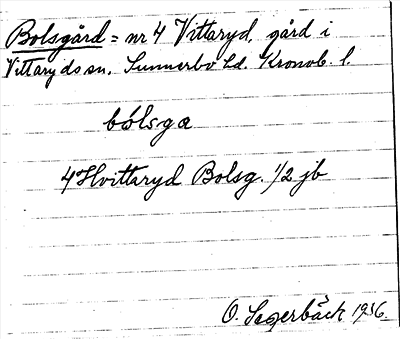 Bolsgård = nr 4 Vittaryd, gård i
Vittaryds sn, Sunnerbo hd. Kronob. l.
bólsga
4 Hvittaryd Bolsg. 1/2 jb
O. Segerbäck 1936